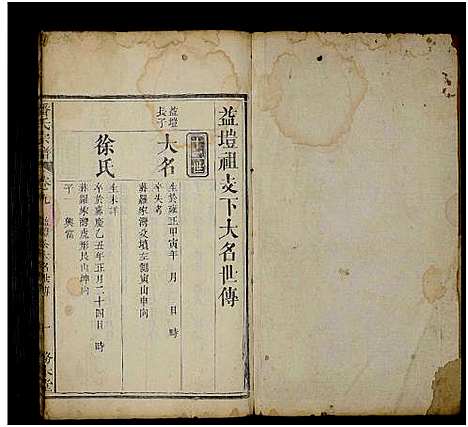 益塏祖支下大名世傳
益塏
長子
大名
生於雍正甲寅年 月 日 時
卒失考
葬羅家灣父墳左側寅山申向
徐氏
生未詳
卒於嘉慶乙丑年正月二十四日 時
葬羅家灣虎形艮山坤向
子一
氏宗譜
卷九
大名世傳
一